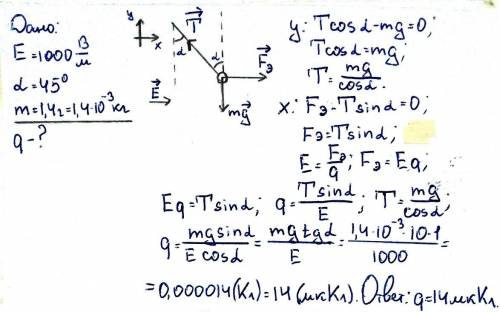 Дано:
E=1000 В/м
α=45°
m=1,4г=1,4·10⁻³кг
q-?
y
x
T⃗
α
α
E⃗
F⃗э
mg⃗
y: Tcosα-mg=0;
Tcosα=mg;
T=mg/cosα.
x: Fэ-Tsinα=0;
Fэ=Tsinα;
E=Fэ/q; Fэ=Eq;
Eq=Tsinα; q=Tsinα/E; T=mg/cosα;
q=mgsinα/Ecosα=mgtgα/E=1,4·10⁻³·10·1/1000=
=0,000014(Кл)=14(мкКл). Ответ: q=14мкКл.